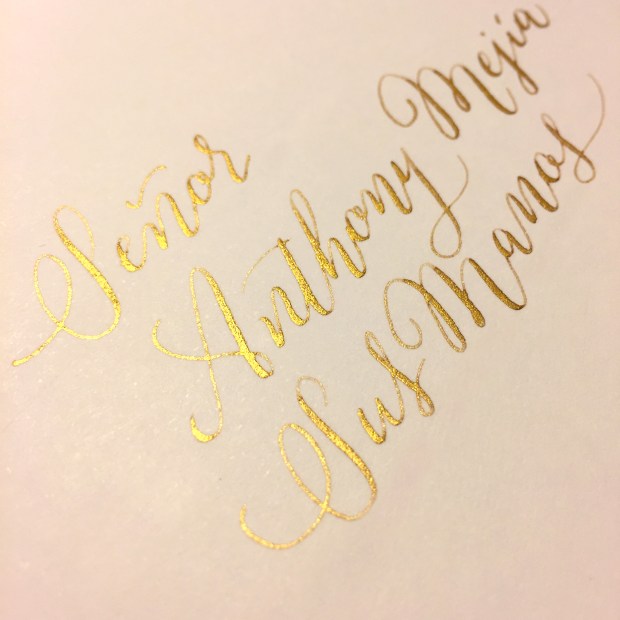 Señor
Anthony Mejia
Sus Manos